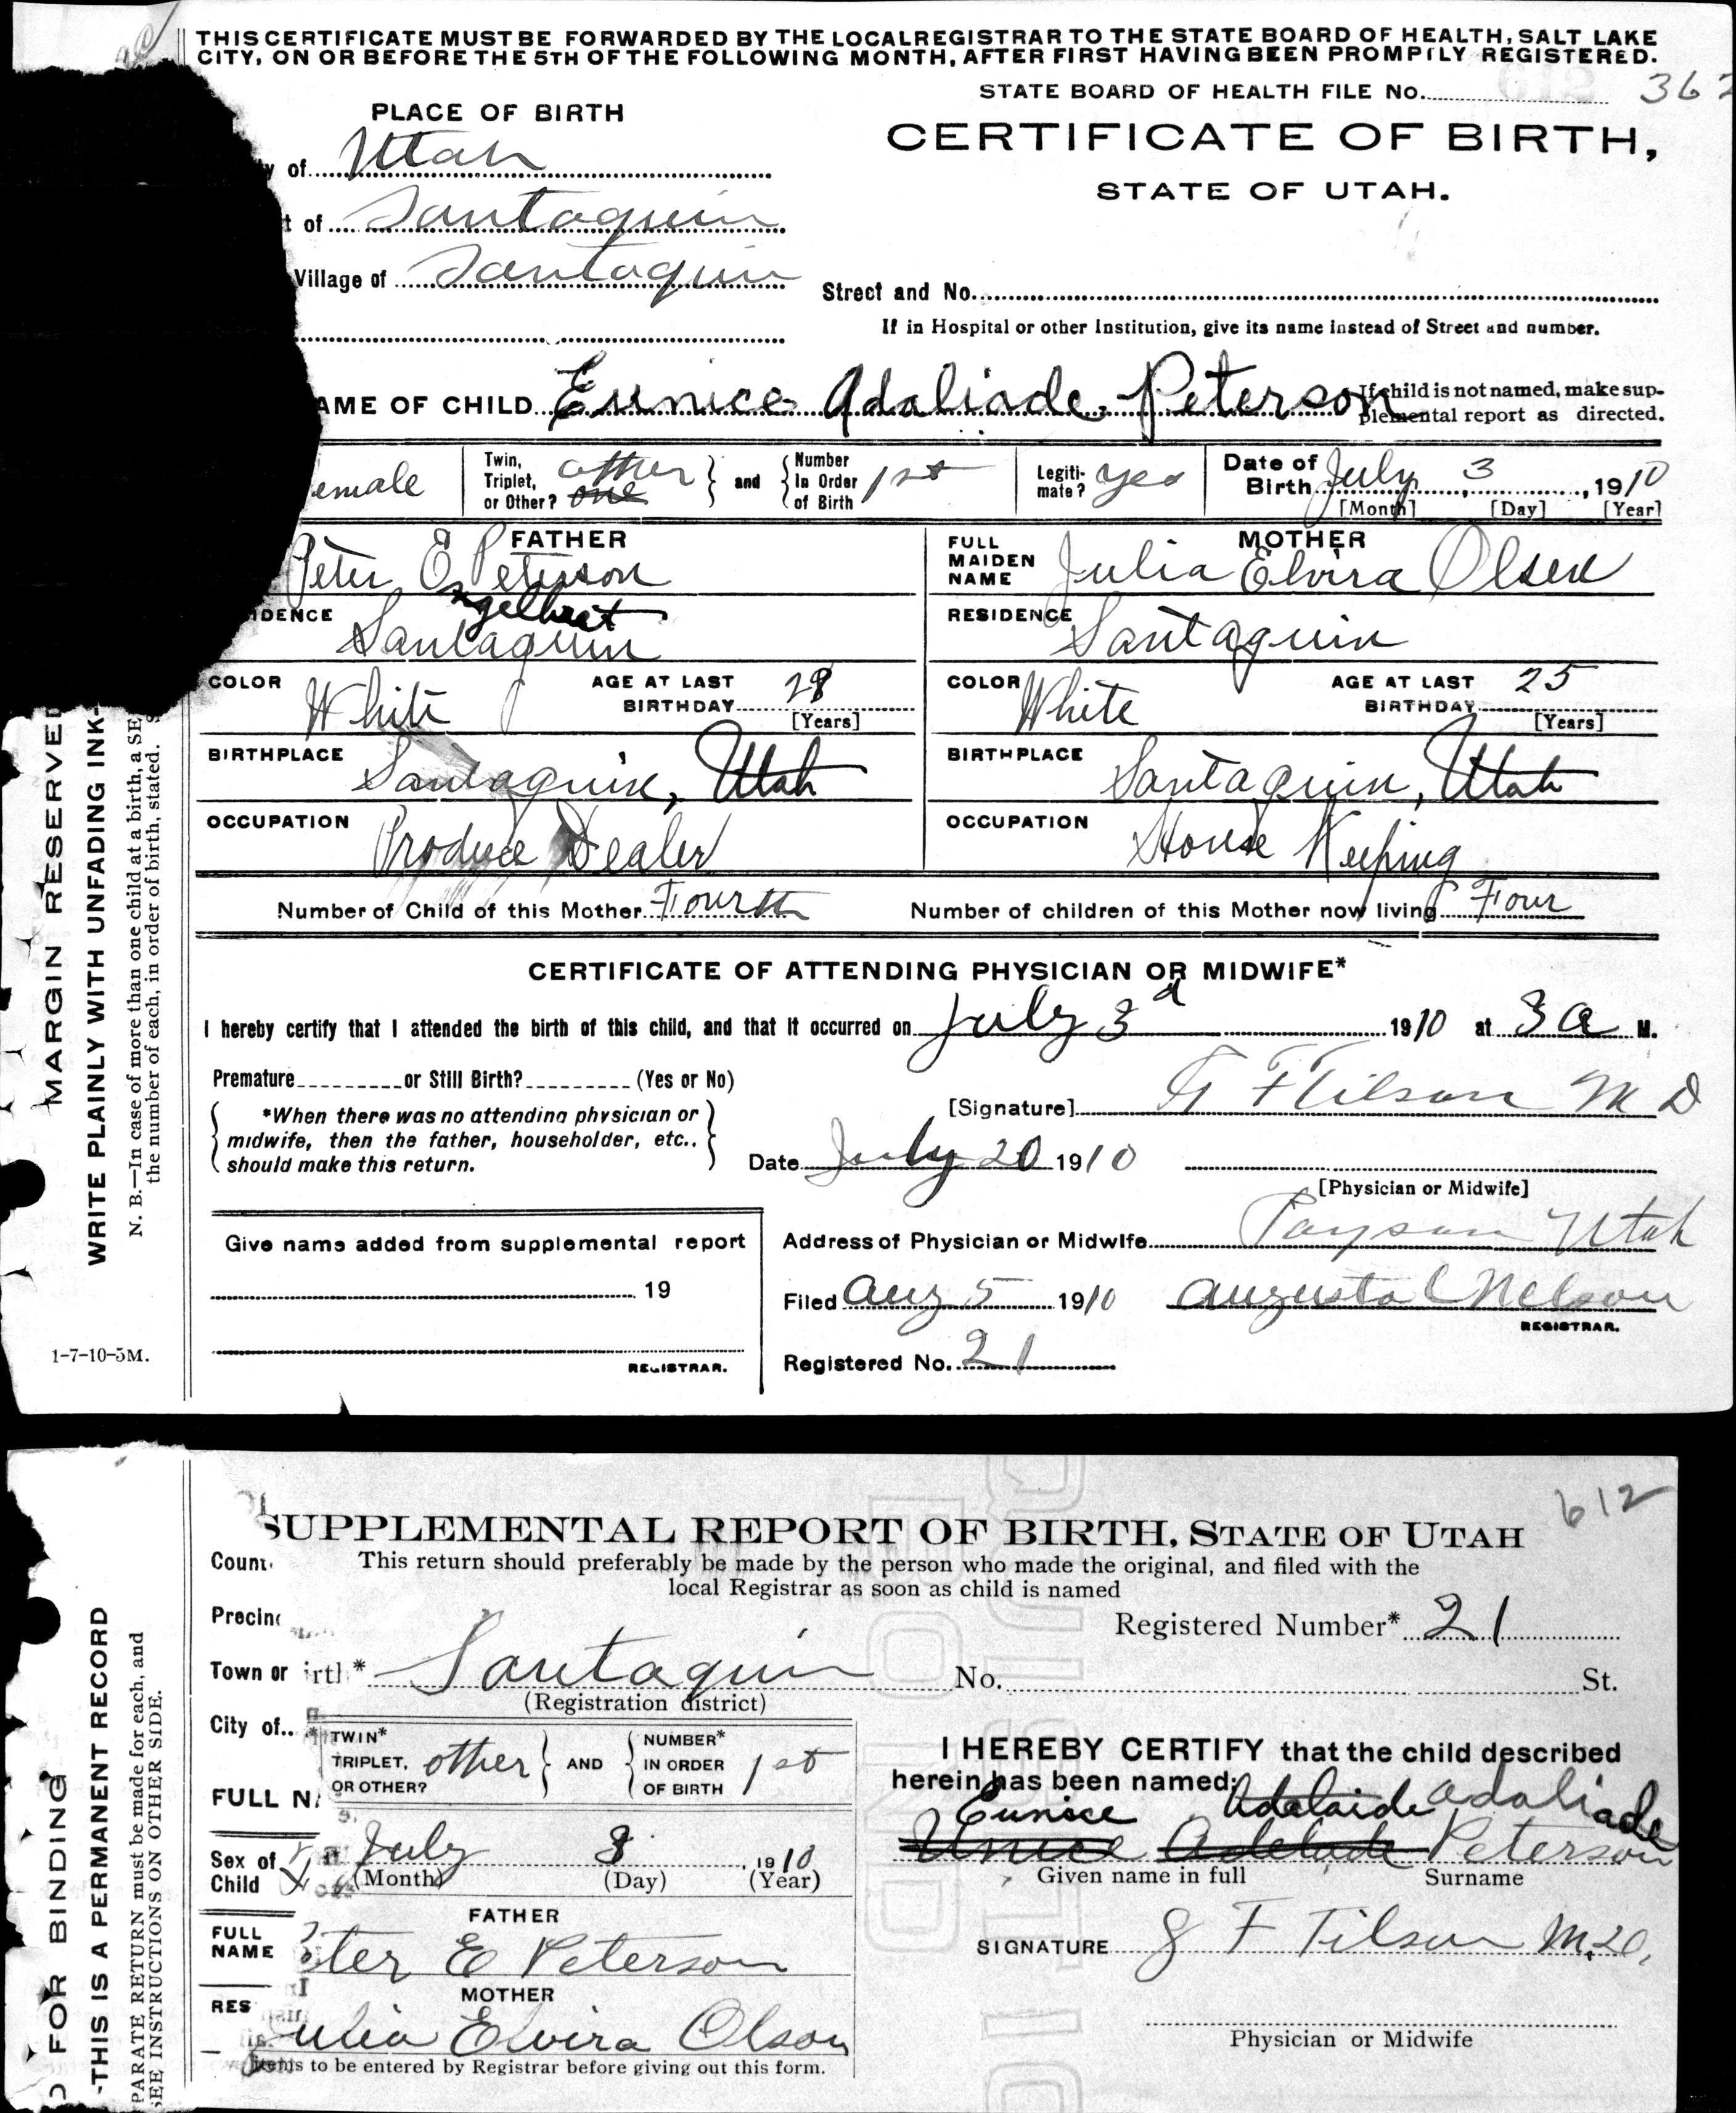 THIS CERTIFICATE MUST BE FORWARDED BY THE LOCAL REGISTRAR TO THE STATE BOARD OF HEALTH, SALT LAKE
CITY, ON OR BEFORE THE 5TH OF THE FOLLOWING MONTH, AFTER FIRST HAVING BEEN PROMPTLY REGISTERED.
STATE BOARD OF HEALTH FILE No. 362
PLACE OF BIRTH
CERTIFICATE OF BIRTH,
STATE OF UTAH.
y of Utah
t of Santaquin
Village of Santaquin
Street and No.
If in Hospital or other Institution, give its name instead of Street and number.
AME OF CHILD Eunice Adaliade Peterson
If child is not named, make sup-
plemental report as directed.
emale
Twin, Triplet, or Other? other one and Number In Order of Birth 1st
Legiti-mate? yes
Date of Birth July 3, 1910
[Month] [Day] [Year]
FATHER
Peter E Peterson
Engelbret
IDENCE Santaquin
COLOR White AGE AT LAST BIRTHDAY 28 [Years]
BIRTHPLACE Santaquin, Utah
OCCUPATION Produce Dealer
MOTHER
FULL MAIDEN NAME Julia Elvira Olsen
RESIDENCE Santaquin
COLOR White AGE AT LAST BIRTHDAY 25 [Years]
BIRTHPLACE Santaquin, Utah
OCCUPATION House Keeping
Number of Child of this Mother Fourth Number of children of this Mother now living Four
CERTIFICATE OF ATTENDING PHYSICIAN OR MIDWIFE*
I hereby certify that I attended the birth of this child, and that it occurred on July 3d 1910 at 3 a M.
Premature or Still Birth? (Yes or No)
*When there was no attending physician or
midwife, then the father, householder, etc.,
should make this return.
[Signature] G F Tilson M D
Date July 20 1910
[Physician or Midwife]
Give name added from supplemental report
19
REGISTRAR.
Address of Physician or Midwife Payson Utah
Filed Aug 5 1910 Augusta C Nelson
REGISTRAR.
Registered No. 21
MARGIN RESERVED
WRITE PLAINLY WITH UNFADING INK-
N. B.—In case of more than one child at a birth, a SE
the number of each, in order of birth, stated. S
1-7-10-5M.
612
SUPPLEMENTAL REPORT OF BIRTH, STATE OF UTAH
This return should preferably be made by the person who made the original, and filed with the
local Registrar as soon as child is named
Count
Precinc
Registered Number* 21
Town or irth* Santaquin No. St.
(Registration district)
City of
TWIN* TRIPLET, OR OTHER? other AND NUMBER* IN ORDER OF BIRTH 1st
FULL NA
Sex of Child
July 3, 1910
(Month) (Day) (Year)
FATHER
FULL NAME
ter E Peterson
MOTHER
RES
Julia Elvira Olson
items to be entered by Registrar before giving out this form.
I HEREBY CERTIFY that the child described
herein has been named:
Eunice Adelaide Adaliade
Unice Adelade Peterson
Given name in full Surname
SIGNATURE G F Tilson M.D.
Physician or Midwife
D FOR BINDING
-THIS IS A PERMANENT RECORD
PARATE RETURN must be made for each, and
SEE INSTRUCTIONS ON OTHER SIDE.